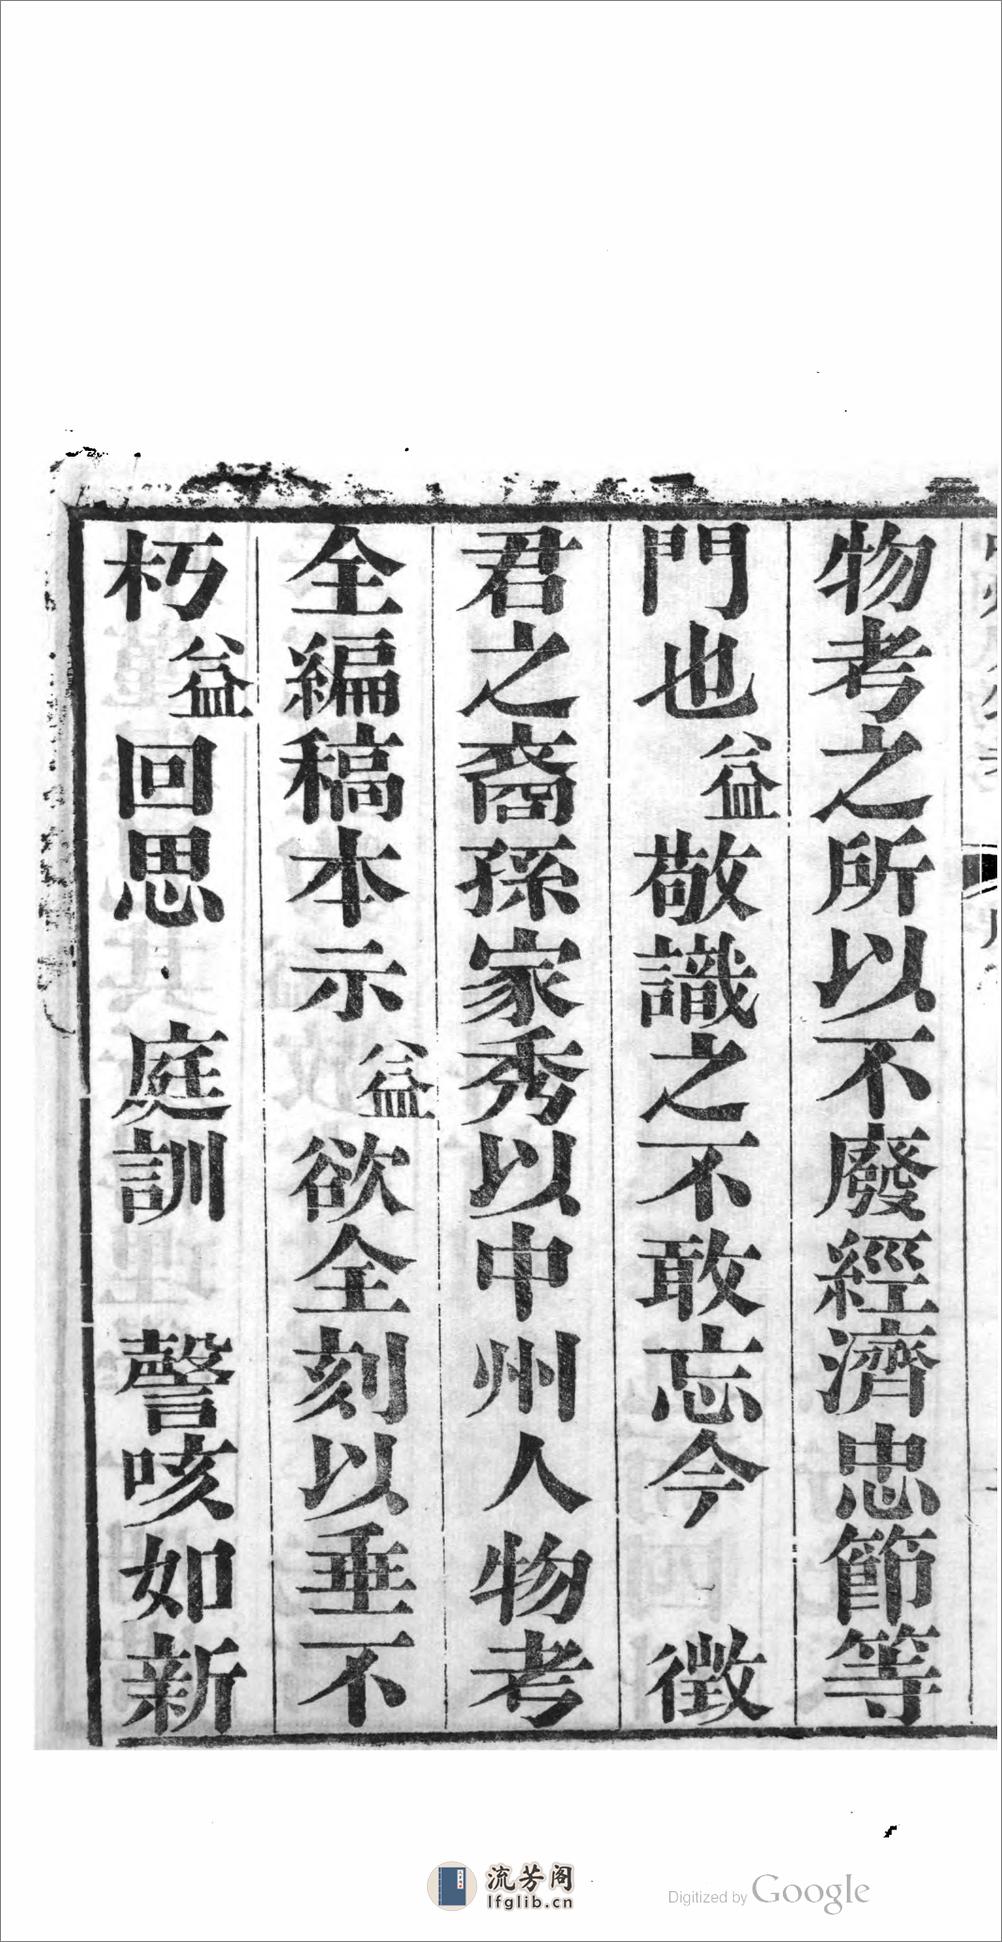 物考之所以不廢經濟忠節等
門也益敬識之不敢忘今　徵
君之裔孫家秀以中州人物考
全編稿本示益欲全刻以垂不
朽益回思　庭訓　謦咳如新
流芳阁
lfglib.cn
Digitized by Google